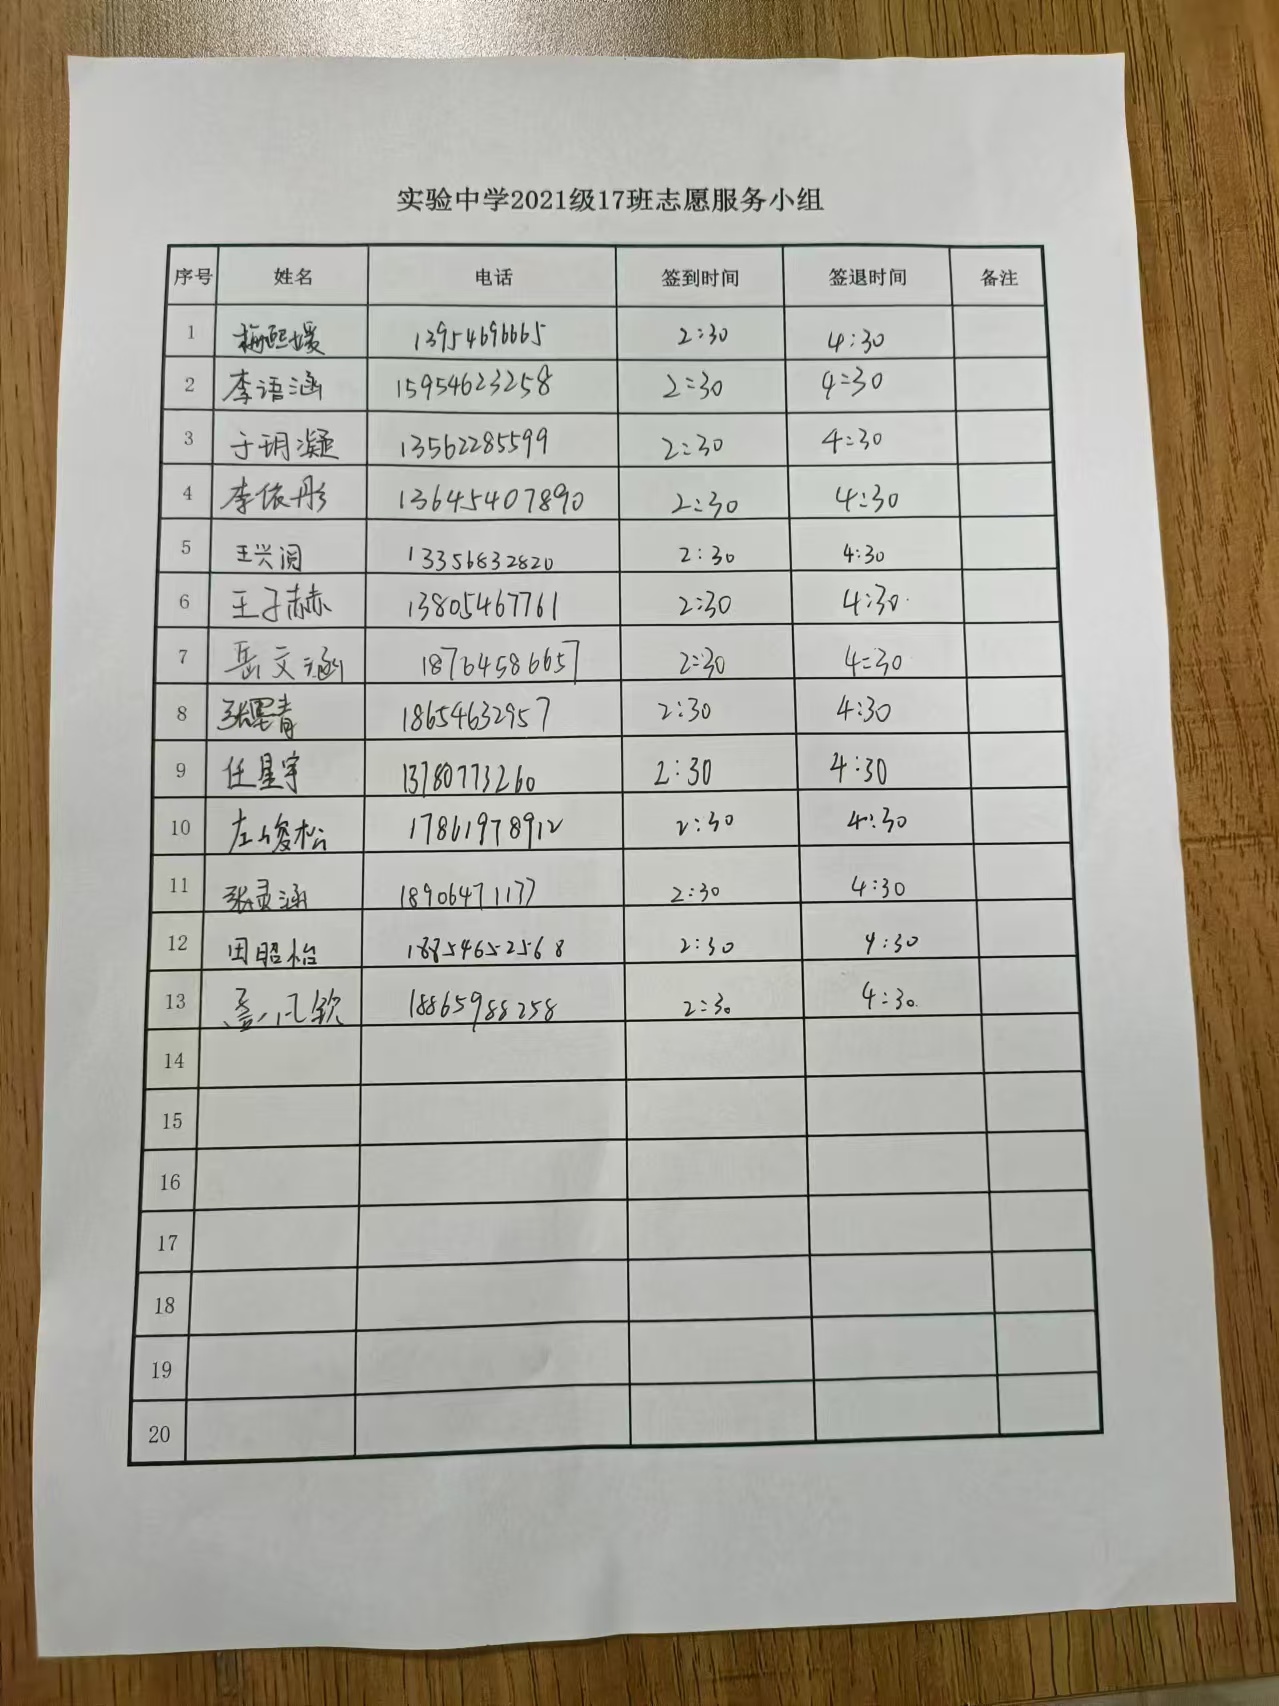 实验中学2021级17班志愿服务小组
序号 姓名 电话 签到时间 签退时间 备注
1 梅熙媛 13954696665 2:30 4:30
2 李语涵 15954623258 2:30 4:30
3 于玥凝 13562285599 2:30 4:30
4 李依彤 13645407890 2:30 4:30
5 王兴阅 13356832820 2:30 4:30
6 王子赫 13805467761 2:30 4:30
7 岳文涵 18764586657 2:30 4:30
8 张墨青 18654632957 2:30 4:30
9 任星宇 13780773260 2:30 4:30
10 左峻松 17861978912 2:30 4:30
11 张灵涵 18906471177 2:30 4:30
12 田昭怡 18854652568 2:30 4:30
13 18865988258 2:30 4:30
14
15
16
17
18
19
20